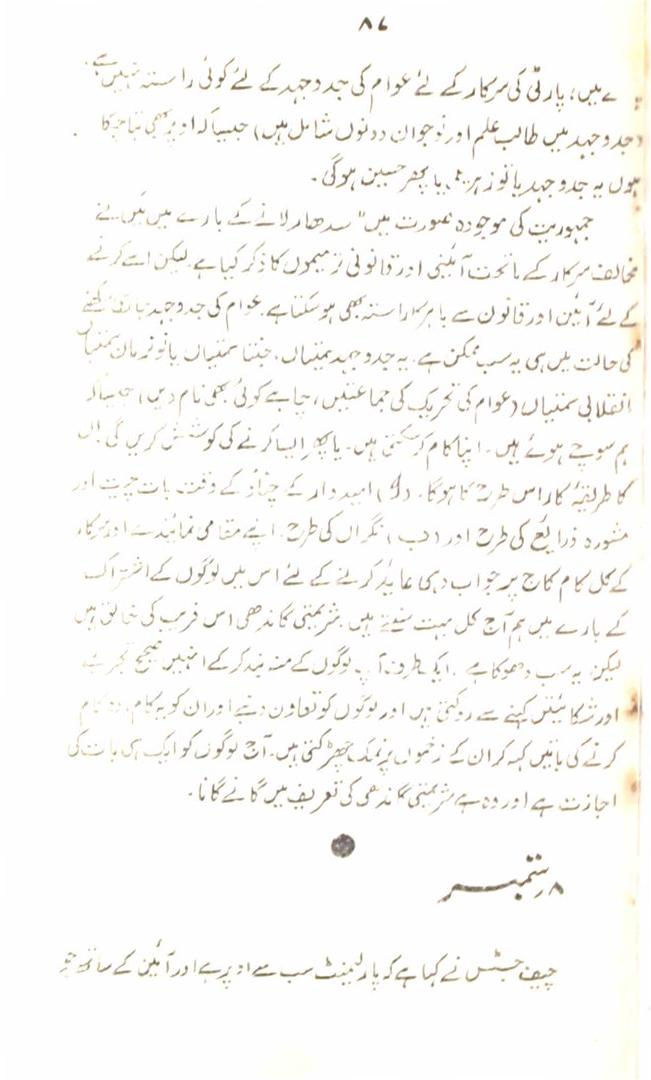 ۸۷
ہیں، پارٹی کی سرکار کے لئے عوام کی جدوجہد کے لئے کوئی راستہ نہیں ہے۔
(جدوجہد میں طالب علم اور نوجوان دونوں شامل ہیں) جیسا کہ اوپر بھی بتا چکا
ہوں یہ جدوجہد یا تو زہریلی یا پھر حسین ہوگی۔
جمہوریت کی موجودہ صورت میں" سدھار لانے کے بارے میں میں نے
مخالف سرکار کے ماتحت آئینی اور قانونی ترمیموں کا ذکر کیا ہے لیکن اسے کرنے
کے لئے آئین اور قانون سے باہر کا راستہ بھی ہو سکتا ہے۔ عوام کی جدوجہد جاری رکھنے
کی حالت میں ہی یہ سب ممکن ہے۔ یہ جدوجہد سمتیاں، جنتا سمتیاں یا نونرمان سمتیاں
انقلابی سمتیاں (عوام کی تحریک کی جماعتیں، چاہے کوئی بھی نام دیں) جیسا کہ
ہم سوچے ہوئے ہیں۔ اپنا کام کر سکتی ہیں۔ یا پھر ایسا کرنے کی کوشش کریں گی۔ ان
کا طریقۂ کار اس طرح کا ہوگا۔ (الف) امیدوار کے چناؤ کے وقت بات چیت اور
مشورہ ذرائع کی طرح اور (ب) نگراں کی طرح۔ اپنے مقامی نمائندے اور سرکار
کے کل کام کاج پر جواب دہی عاید کرنے کے لئے اس میں لوگوں کے اشتراک
کے بارے میں ہم آج کل بہت سنتے ہیں۔ شریمتی گاندھی اس فریب کی خالق ہیں
لیکن یہ سب دھوکا ہے۔ ایک طرف آپ لوگوں کے منہ بند کر کے انہیں صحیح تجربے
اور شکائتیں کہنے سے روکتی ہیں اور لوگوں کو تعاون دینے اور ان کو یہ کام، وہ کام
کرنے کی باتیں کہہ کر ان کے زخموں پر نمک چھڑکتی ہیں۔ آج لوگوں کو ایک ہی بات کی
اجازت ہے اور وہ ہے شریمتی گاندھی کی تعریف میں گانے گانا۔
۸ ستمبر
چیف جسٹس نے کہا ہے کہ پارلیمنٹ سب سے اوپر ہے اور آئین کے ساتھ جو